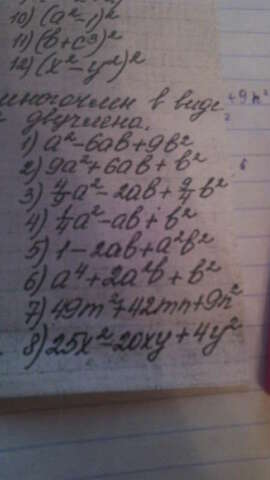 10) (a²-1)²
11) (b+c³)²
12) (x²-y²)²
многочлен в виде
двучлена.
1) a²-6ab+9b²
2) 9a²+6ab+b²
3) 4/9a²-2ab+9/4b²
4) 1/4a²-ab+b²
5) 1-2ab+a²b²
6) a⁴+2a²b+b²
7) 49m²+42mn+9n²
8) 25x²-20xy+4y²